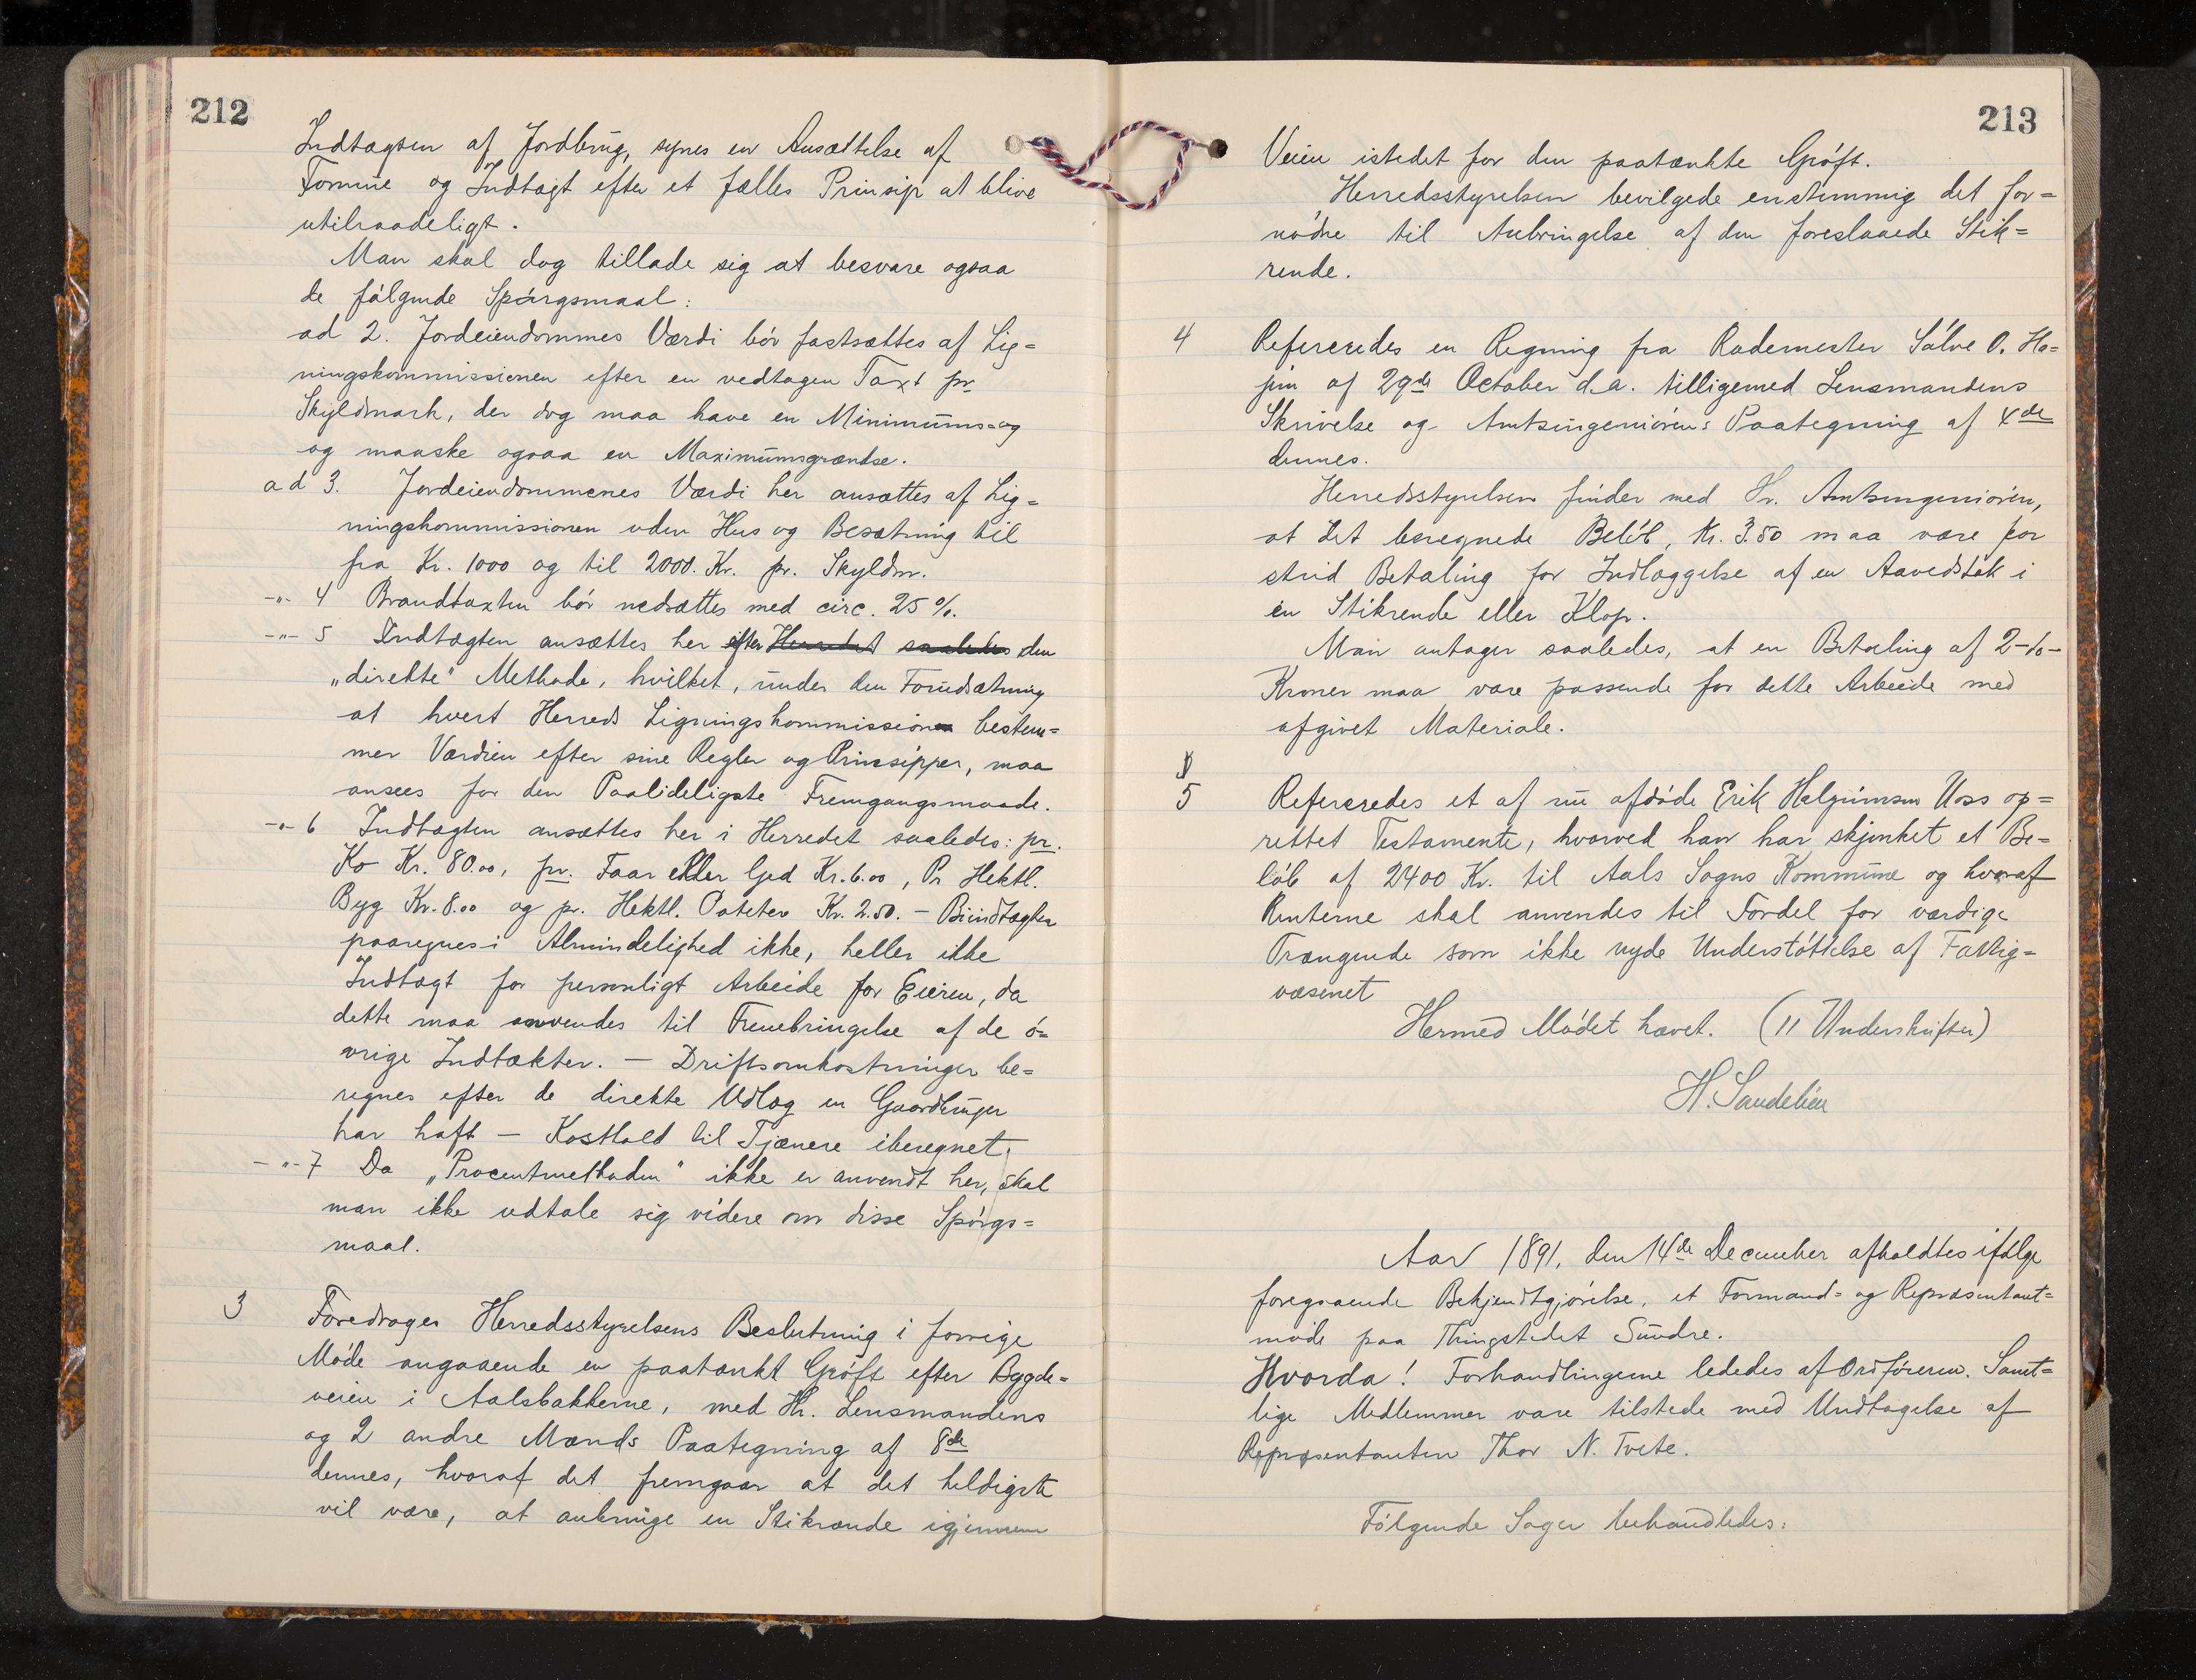 212
Indtægten af Jordbrug, synes en Ansættelse af
Formue og Indtægt efter et fælles Prinsip at blive
utilraadeligt.
Man skal dog tillade sig at besvare ogsaa
de følgende Spørgsmaal:
ad 2. Jordeiendommes Værdi bør fastsættes af Lig=
ningskommissionen efter en vedtagen Taxt pr
Skyldmark, der dog maa have en Minimums=og
og maaske ogsaa en Maximumsgrændse.
ad 3. Jordeiendommenes Værdi her ansættes af Lig=
ningskommissionen uden Hus og Besætning til
fra Kr. 1000 og til 2000. Kr. pr. Skyldm.
-"- 4 Brandtaxten bør nedsættes med circ. 25 %.
-"- 5 Indtægten ansættes her efter Herredet saaledes den
„direkte" Methode, hvilket, under den Forudsætning
at hvert Herreds Ligningskommission bestem=
mer Værdien efter sine Regler og Prinsipper, maa
ansees for den Paalideligste Fremgangsmaade.
-"- 6 Indtægten ansættes her i Herredet saaledes: pr.
Ko Kr. 80.00, pr. Faar eller Gjed Kr. 6.00, Pr Hektl.
Byg Kr. 8.00 og pr. Hektl. Poteter Kr. 2.50. - Biindtægter
paaregnes i Almindelighed ikke, heller ikke
Indtægt for personligt Arbeide for Eieren, da
dette maa anvendes til Frembringelse af de ø=
vrige Indtækter. - Driftsomkostninger be=
regnes efter de direkte Udlæg en Gaardbruger
har haft - Kosthold til Tjænere iberegnet.
-"- 7 Da „Procentmethoden" ikke er anvendt her, skal
man ikke udtale sig videre om disse Spørgs=
maal.
3 Foredrages Herredsstyrelsens Beslutning i forrige
Møde angaaende en paatænkt Grøft efter Bygde=
veien i Aalsbakkerne, med Hr. Lensmandens
og 2 andre Mænds Paategning af 8de
dennes, hvoraf det fremgaar at det heldigste
vil være, at anbringe en Stikrænde igjennem
213
Veien istedet for den paatænkte Grøft.
Herredsstyrelsen bevilgede enstemmig det for=
nødne til Anbringelse af den foreslaaede Stik=
rende.
4 Refereredes en Regning fra Rodemester Sølve O. Ho=
jim af 29de October d.a. tilligemed Lensmandens
Skrivelse og Amtsingeniørens Paategning af 4de
dennes.
Herredsstyrelsen finder med Hr. Amtsingeniøren,
at det beregnede Beløb, Kr. 3.50 maa være for
strid Betaling for Indlæggelse af en Aavedstok i
en Stikrende eller Klop.
Man antager saaledes, at en Betaling af 2-to-
Kroner maa være passende for dette Arbeide med
afgivet Materiale.
5 Refereredes et af nu afdøde Erik Halgrimsen Uoss op=
rettet Testamente, hvorved han har skjenket et Be=
løb af 2400 Kr. til Aals Sogns Kommune og hvoraf
Renterne skal anvendes til Fordel for værdige
Trængende som ikke nyde Understøttelse af Fattig=
væsenet
Hermed Mødet hævet. (11 Underskrifter)
H. Sandelien
Aar 1891, den 14de December afholdtes ifølge
foregaaende Bekjendtgjørelse, et Formand= og Repræsentant=
møde paa Thingstedet Sundre.
Hvorda! Forhandlingerne lededes af Ordføreren. Samt=
lige Medlemmer vare tilstede med Undtagelse af
Repræsentanten Thor N. Tvete.
Følgende Sager behandledes: